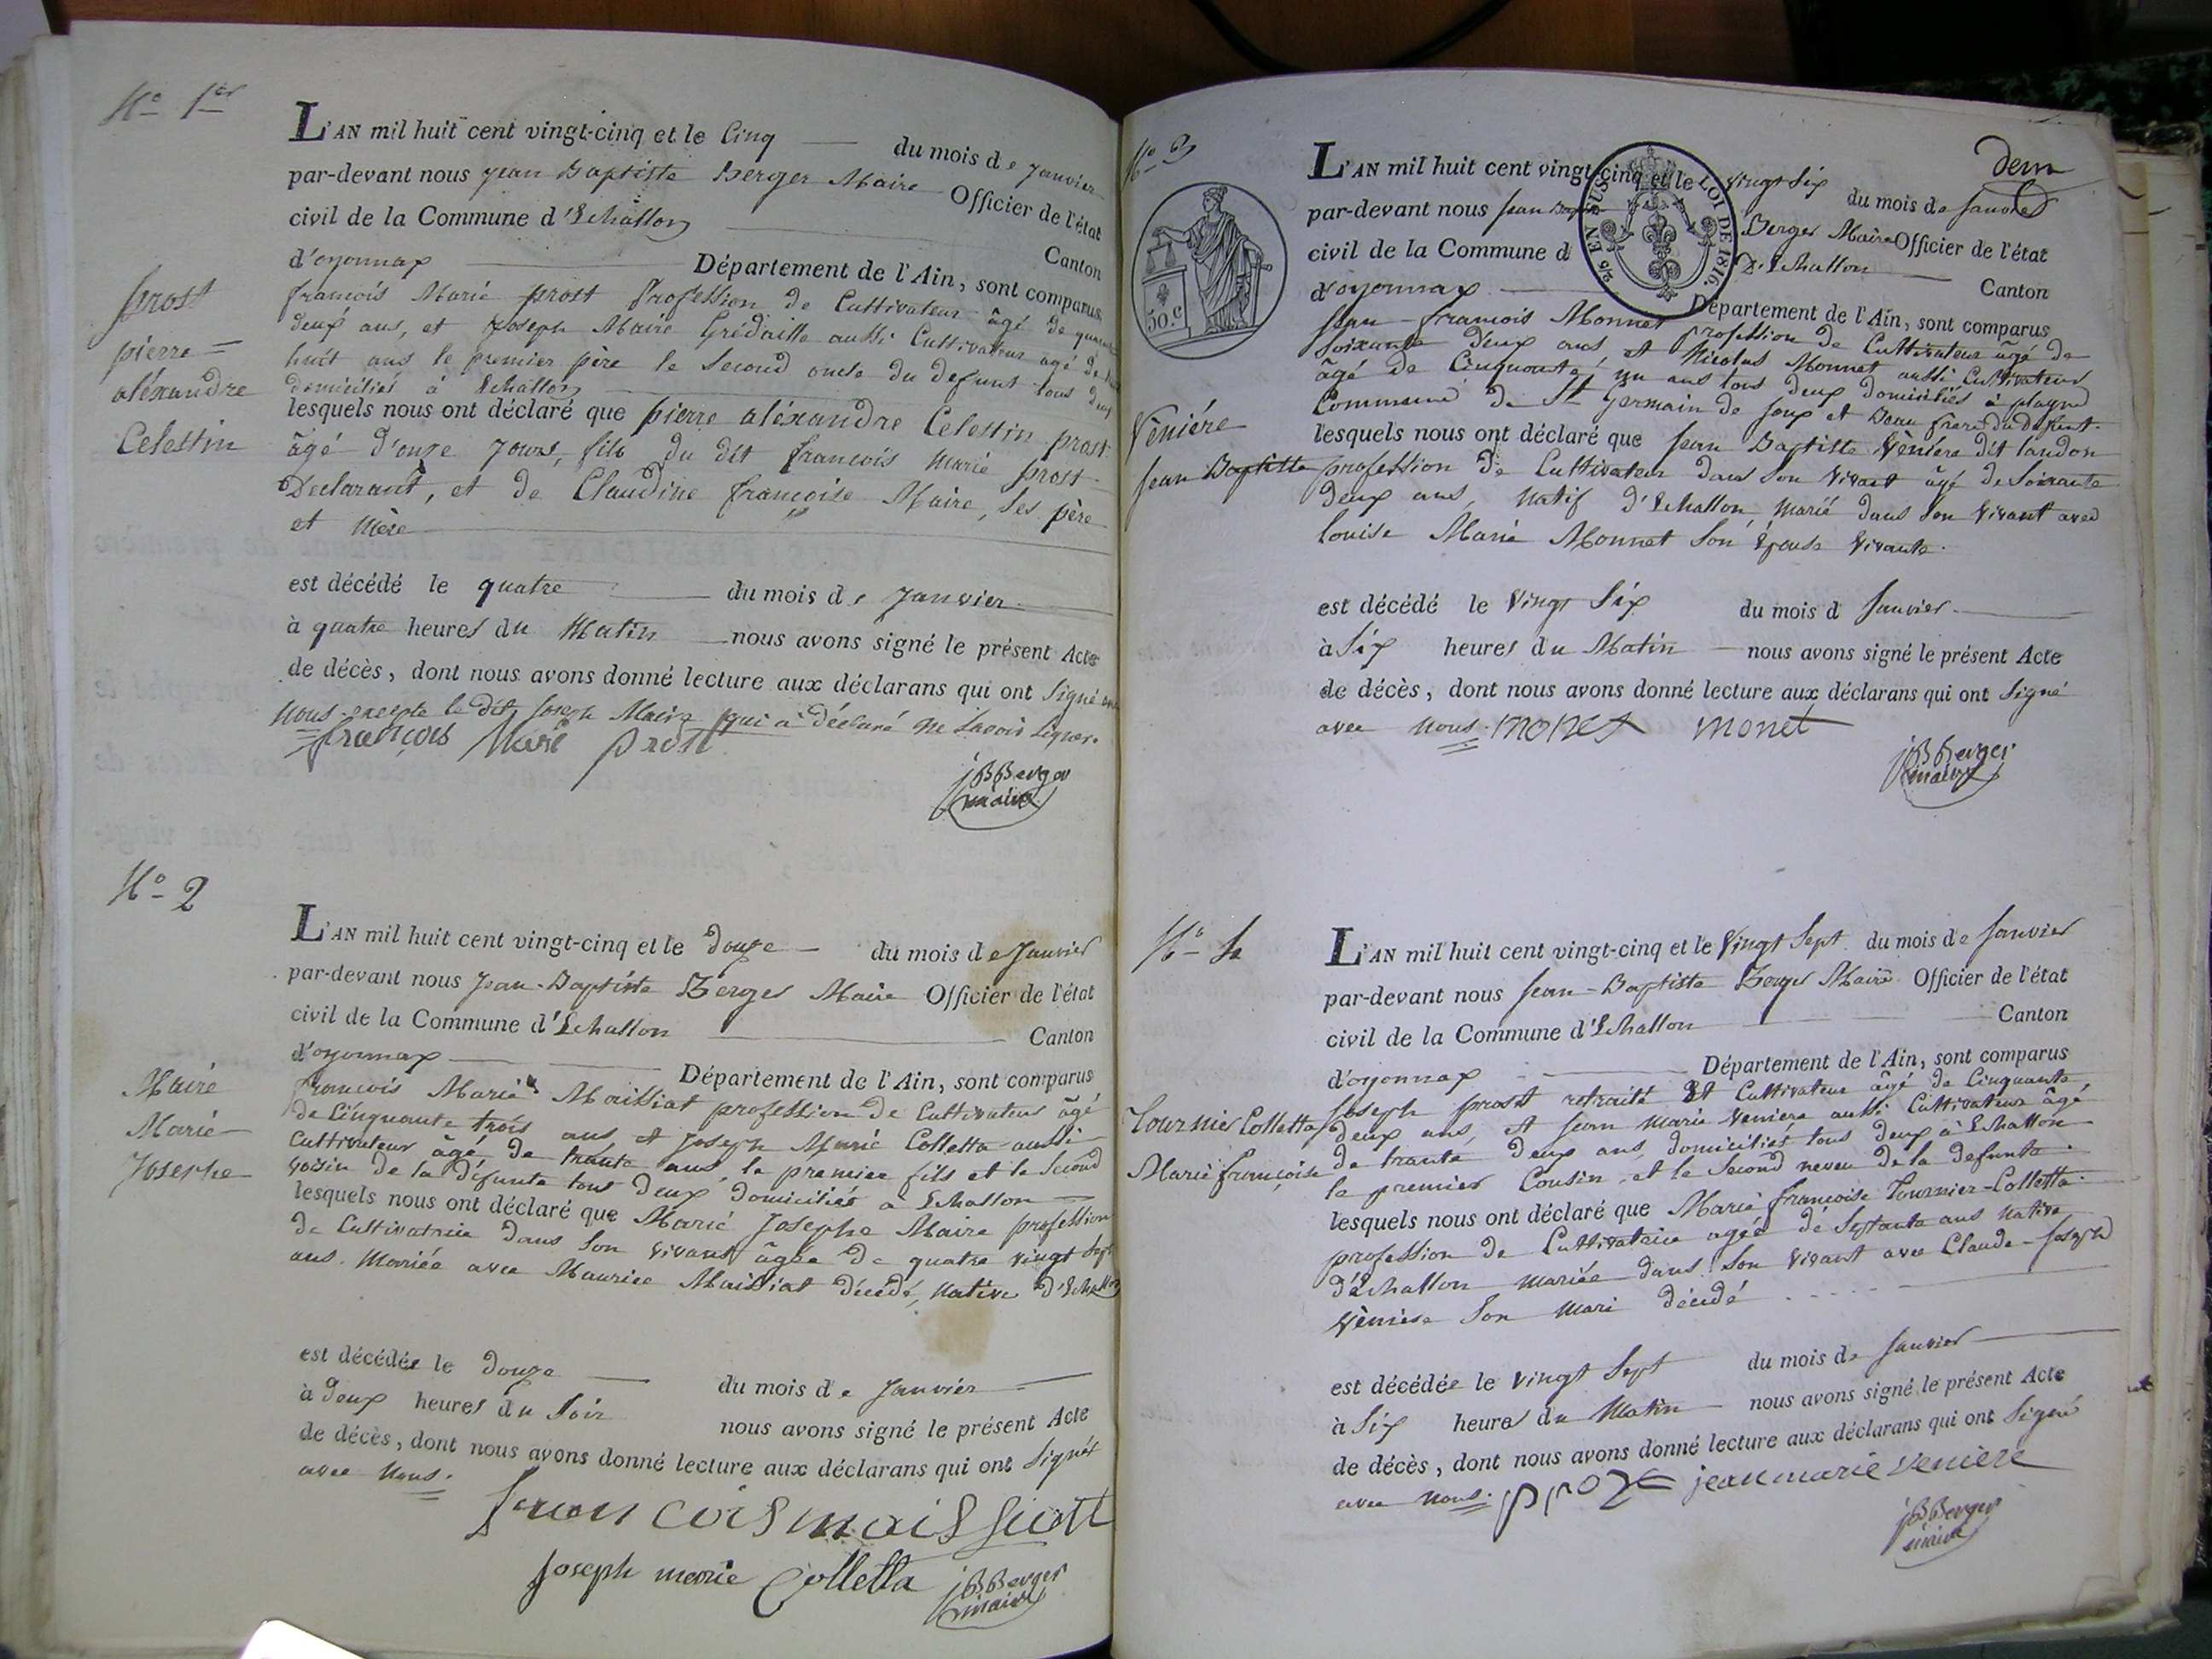 No 1er
L'AN mil huit cent vingt-cinq et le Cinq du mois de Janvier
par-devant nous Jean Baptiste Berger Maire Officier de l'état
civil de la Commune d'Echallon Canton
d'oyonnax Département de l'Ain, sont comparus
Prost
pierre =
aléxandre
Celestin
francois Marie prost Profession de Cultivateur âgé de
deux ans, et Joseph Maire Grédaille aussi Cultivateur agé de
huit ans le premier père le Second oncle du defunt tous deux
domiciliés à Echallon
lesquels nous ont déclaré que pierre aléxandre Celestin prost
âgé d'onze Jours, fils du dit françois Marie prost
Declarant, et de Claudine françoise Maire, Ses père
et Mère
est décédé le quatre du mois de Janvier
à quatre heures du Matin nous avons signé le présent Acte
de décès, dont nous avons donné lecture aux déclarans qui ont Signé avec
Nous excepte le dit Joseph Maire qui a déclaré ne Savoir Signer.
françois Marie prost
jBBerger
maire
No 2
L'AN mil huit cent vingt-cinq et le douze du mois de Janvier
par-devant nous Jean-Baptiste Berger Maire Officier de l'état
civil de la Commune d'Echallon Canton
d'oyonnax Département de l'Ain, sont comparus
Maire
Marie
Josephe
francois Marie Maissiat profession de Cultivateur âgé
de Cinquante trois ans, et Joseph Marie Colletta aussi
Cultivateur âgé de trante ans, le premier fils et le Second
voisin de la défunte tous deux domiciliés a Echallon
lesquels nous ont déclaré que Marie Josephe Maire profession
de Cultivatrice dans Son vivant âgée de quatre vingt Sept
ans. Mariée avec Maurice Maissiat décédé, Native d'Echallon
est décédée le douze du mois de Janvier
à deux heures du Soir nous avons signé le présent Acte
de décès, dont nous avons donné lecture aux déclarans qui ont Signés
avec Nous.
francois maissiatt
Joseph marie Colletta
jBBerger
maire
No 3
dern
50.c
EN SUS
LOI DE 1816.
L'AN mil huit cent vingt-cinq et le vingt Six du mois de Janvier
par-devant nous Jean Baptiste Berger Maire Officier de l'état
civil de la Commune d D'Echallon Canton
d'oyonnax Département de l'Ain, sont comparus
Vèniére
Jean Baptiste
Jean-francois Monnet Profession de Cultivateur âgé de
Soixante deux ans et Nicolas Monnet aussi Cultivateur
âgé de Cinquante un ans tous deux domiciliés à plagne
Commune de St Germain de Joux et Beau frere du Defunt.
lesquels nous ont déclaré que Jean Baptiste Vènière dit landon
profession de Cultivateur dans Son vivant âgé de Soixante
deux ans, Natif d'Echallon, Marié dans Son vivant avec
Louise Marie Monnet Son épouse vivante.
est décédé le vingt Six du mois d Janvier
à Six heures du Matin nous avons signé le présent Acte
de décès, dont nous avons donné lecture aux déclarans qui ont Signé
avec Nous. monet monet
jBBerger
maire
No 4
L'AN mil huit cent vingt-cinq et le Vingt Sept du mois de Janvier
par-devant nous Jean-Baptiste Berger Maire Officier de l'état
civil de la Commune d'Echallon Canton
d'oyonnax Département de l'Ain, sont comparus
Tournier Colletta
Marie françoise
Joseph prost retraité Et Cultivateur âgé de Cinquante
deux ans, et Jean Marie Veniere aussi Cultivateur âgé
de trante deux ans, domiciliés tous deux à Echallon
le premier Cousin, et le Second neveu de la defunte.
lesquels nous ont déclaré que Marie françoise Tournier-Colletta.
profession de Cultivatrice agée de Septante ans Native
d'échallon mariée dans Son vivant avec Claude-Joseph
Vèniere Son Mari décédé
est décédée le vingt Sept du mois de Janvier
à Six heures du Matin nous avons signé le présent Acte
de décès, dont nous avons donné lecture aux déclarans qui ont Signé
avec nous. jean marie veniere
jBBerger
maire